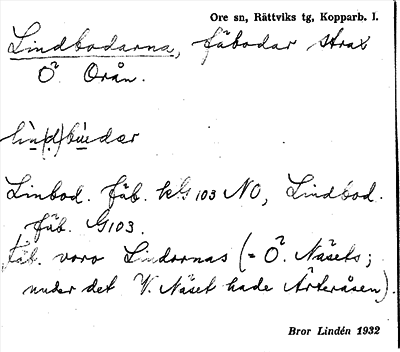 Ore sn, Rättviks tg, Kopparb. l.
Lindbodarna, fäbodar strax
Ö. Orån.
lin(d)bu̇dar
Linbod. fäb. kG103 NO, Lindbod.
fäb. G103.
Fäb. voro Lindornas (= Ö. Näsets;
under det V. Näset hade Ärteråsen).
Bror Lindén 1932